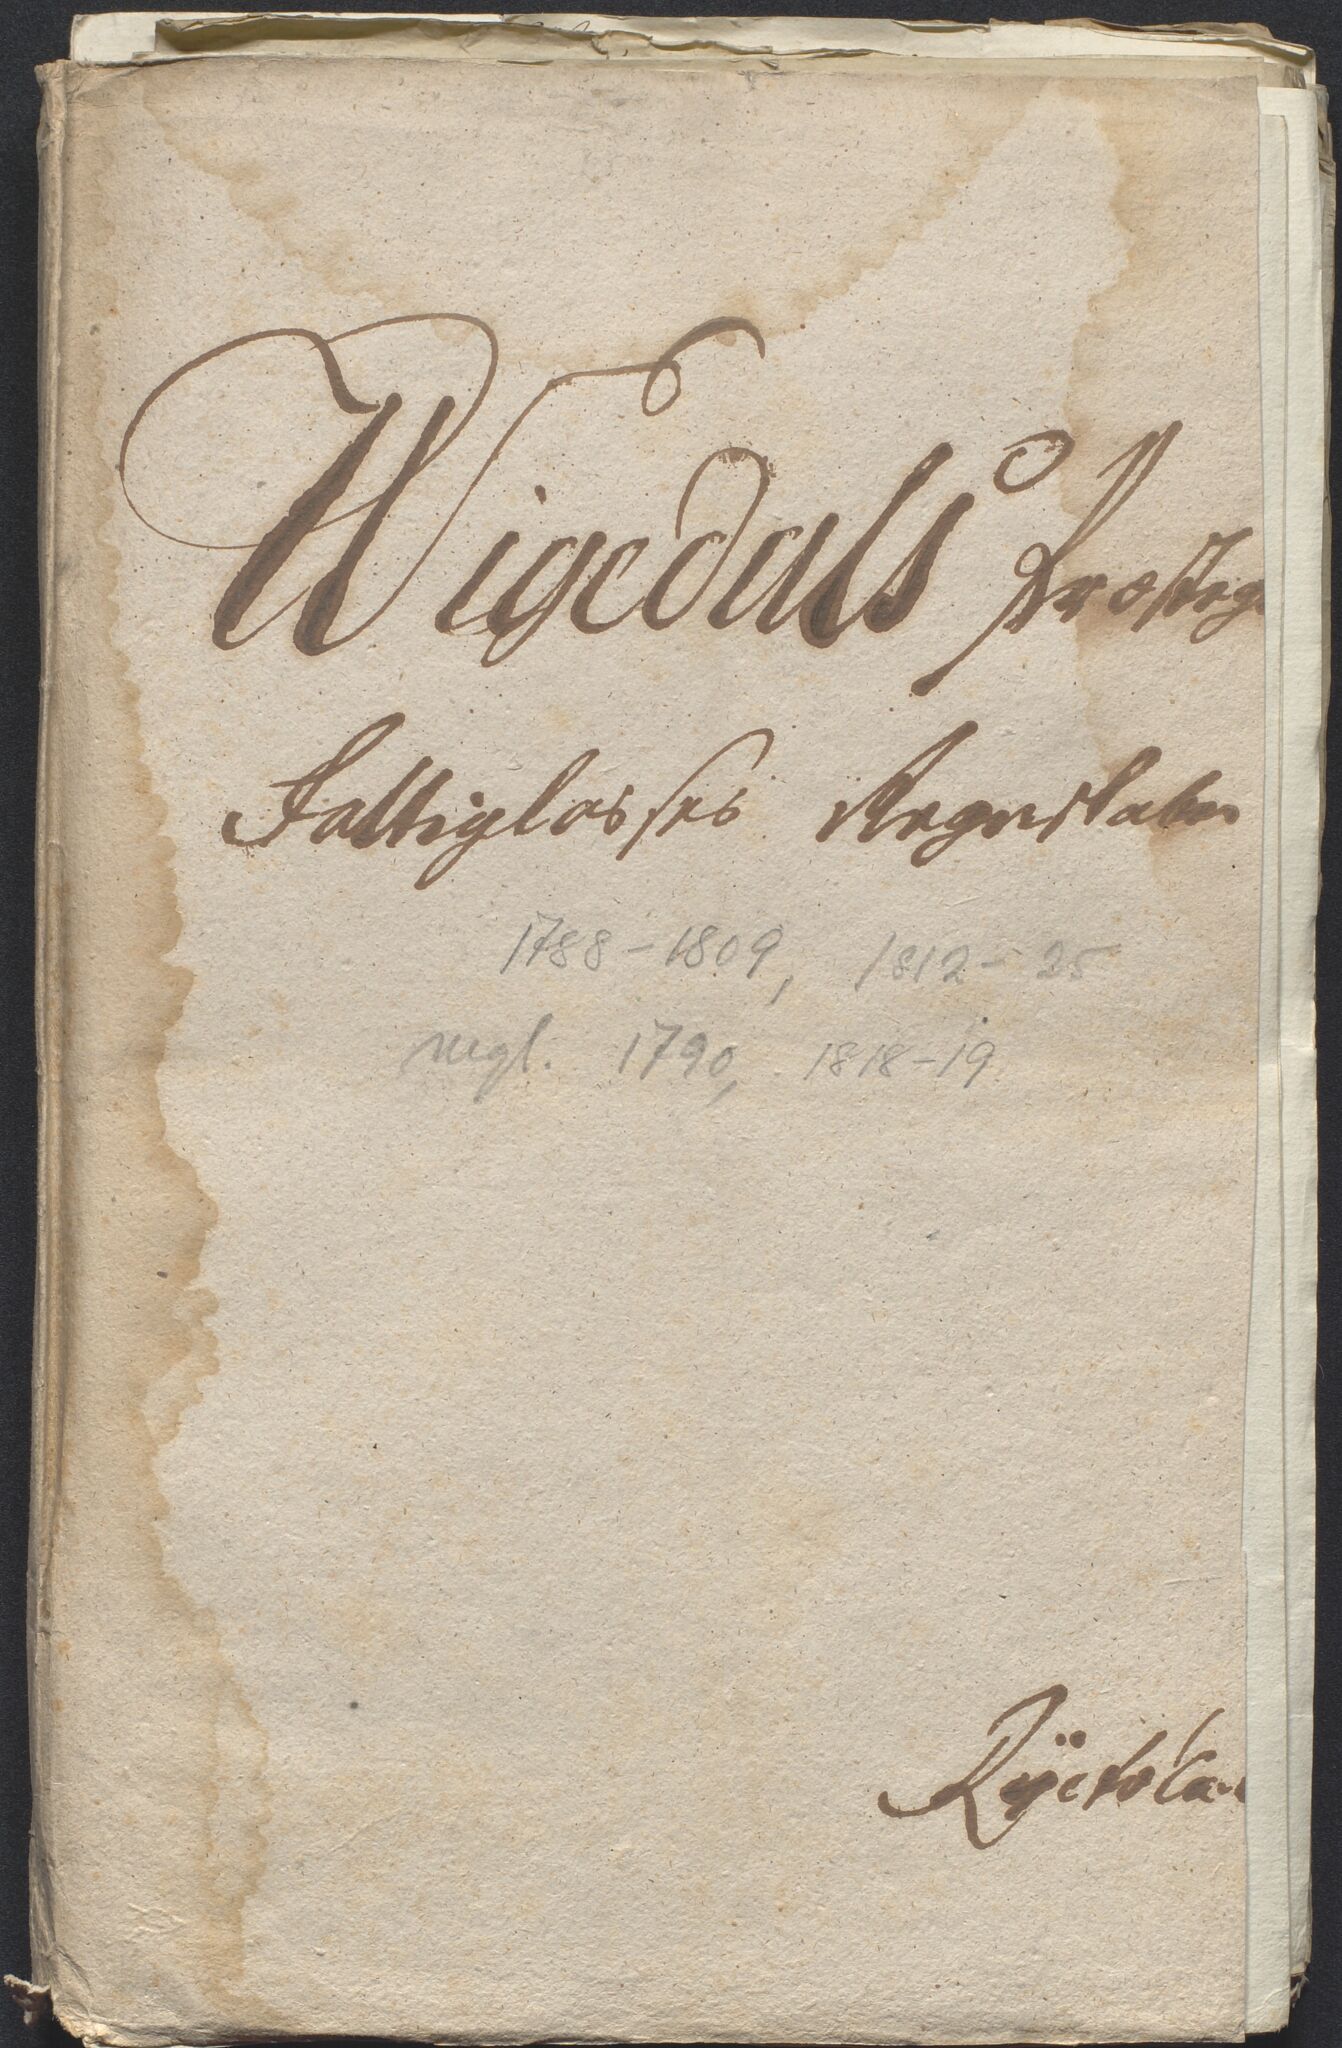 Wigedals Præsteg
Fattigkasses Regnskaber
1788-1809, 1812-25
mgl. 1790, 1818-19